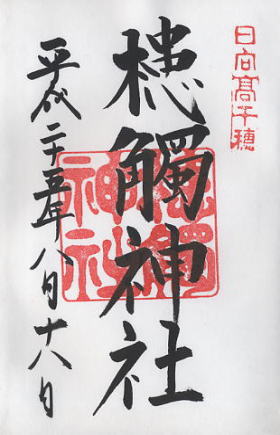 日向高千穂
槵觸神社
平成二十五年八月十八日
槵觸神社